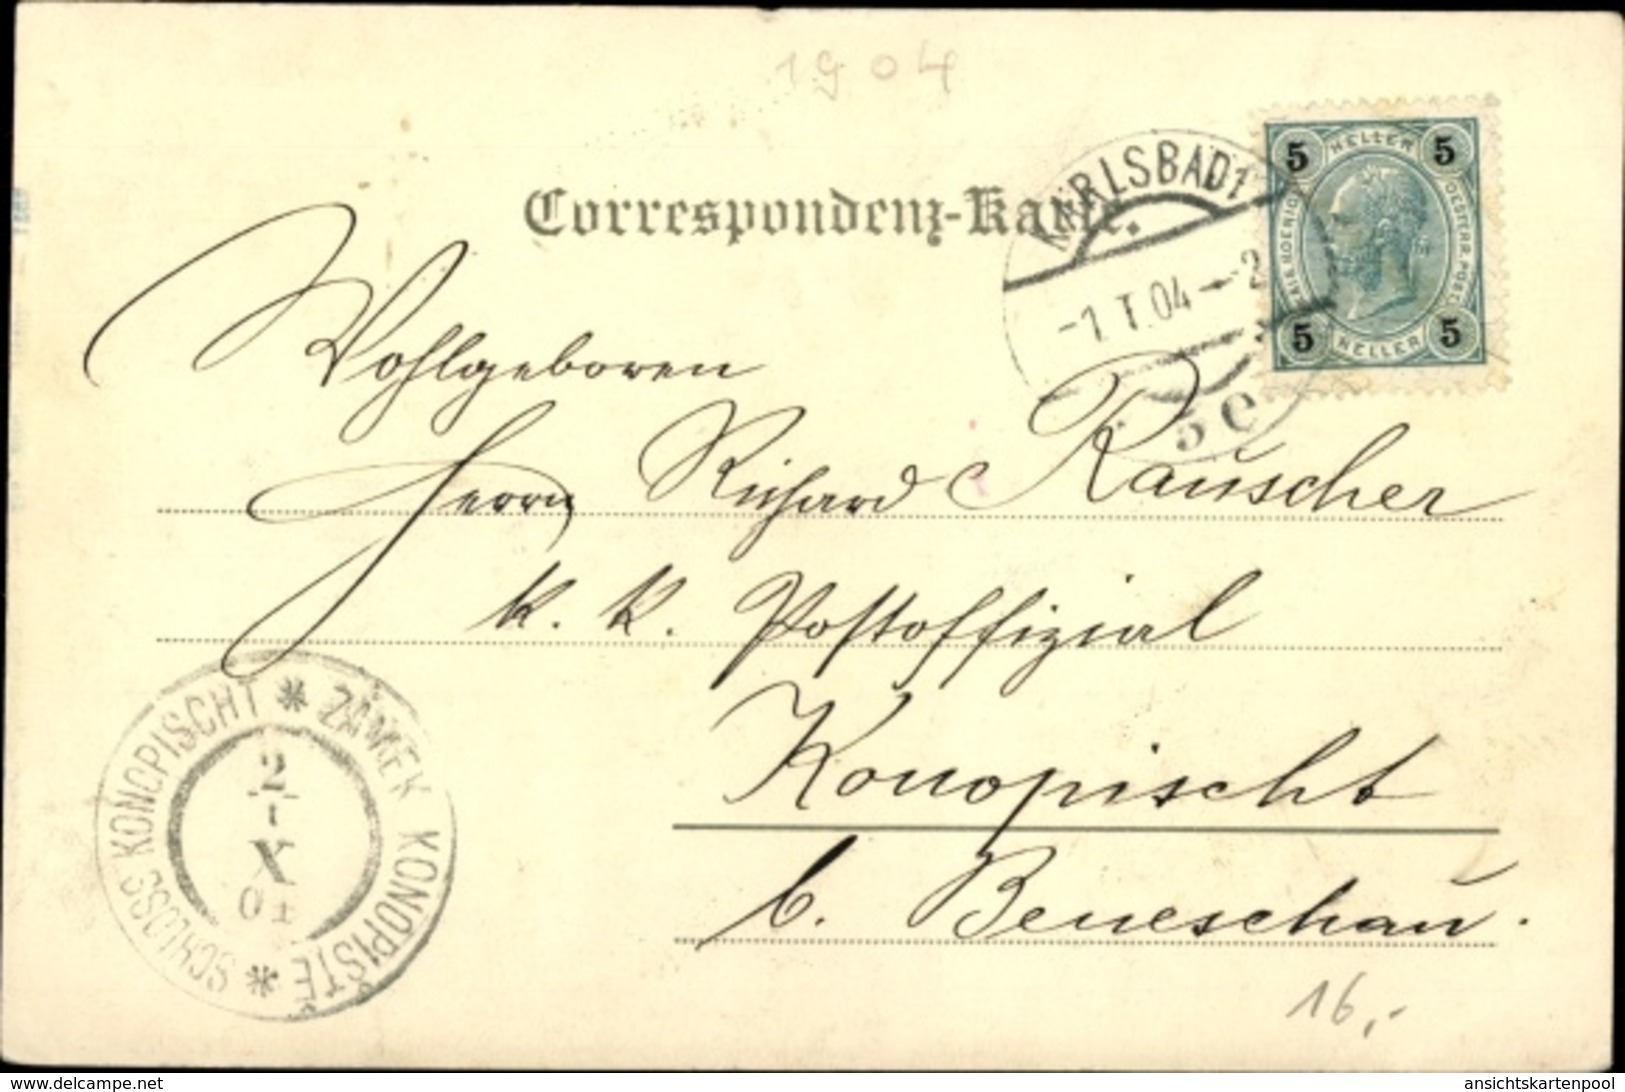 1904
Correspondenz-Karte.
KARLSBAD 1
-1.I.04-2
5 e
5 HELLER 5
KAIS. KOENIGL. OESTERR. POST.
5 HELLER 5
Wohlgeboren
Herrn Richard Rauscher
k. k. Postoffizial
Konopischt
b. Beneschau.
SCHLOSS KONOPISCHT * ZÁMEK KONOPIŠTĚ *
2
X
04
16,-
www.delcampe.net
ansichtskartenpool